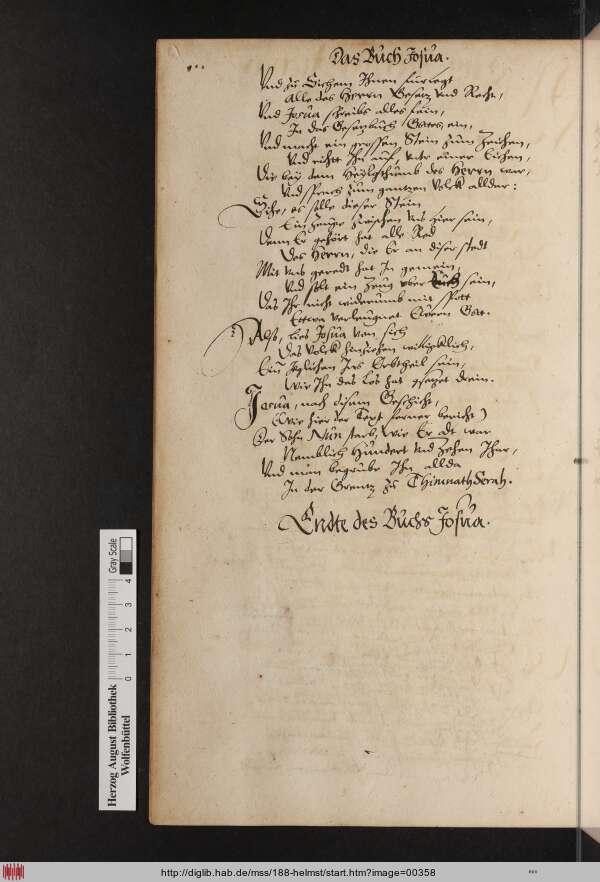 Das Buch Josua.
Vnd zu Sichem Ihnen fürlegt
Alle des Herrn Gesetz vnd Recht,
Vnd Josua schreibs alles fein,
In das Gesetzbuch Gottes ein,
Vnd macht ein grossen Stein zum Zeichen,
Vnd richtt Ihn auf, unter einer Eichen,
Die bey dem Heyligthumb des Herrn war,
Vnd sprach zum gantzen Volck alldar:
Sihe, es solle dieser Stein
Ein Zeuge zwischen vns hier sein,
Dann Er gehört hat alle Red
Des Herrn, die Er an diser stedt
Mit vns geredt hat In gemein,
Vnd solt ein Zeug vber Euch sein,
Das Ihr nicht widerumb mit spott
Ettwa verleugnet Euern Gott.
Also, lies Josua von sich
Das Volck hinziehen williglich,
Ein Jeglichen Ins Erbtheil sein,
Wie Ihn das Los hat gesezet drein.
Josua, nach disem Geschicht,
(Wie hier der Text ferner bericht)
Der Sohn Nun starb, wie Er alt war
Nemblich Hundert vnd Zehen Jhar,
Vnd man begrube Ihn allda
In der Grentz zu Thimnath Serah.
Endte des Buchs Josua.
Herzog August Bibliothek
Wolfenbüttel
0 1 2 3 4
Gray Scale
http://diglib.hab.de/mss/188-helmst/start.htm?image=00358